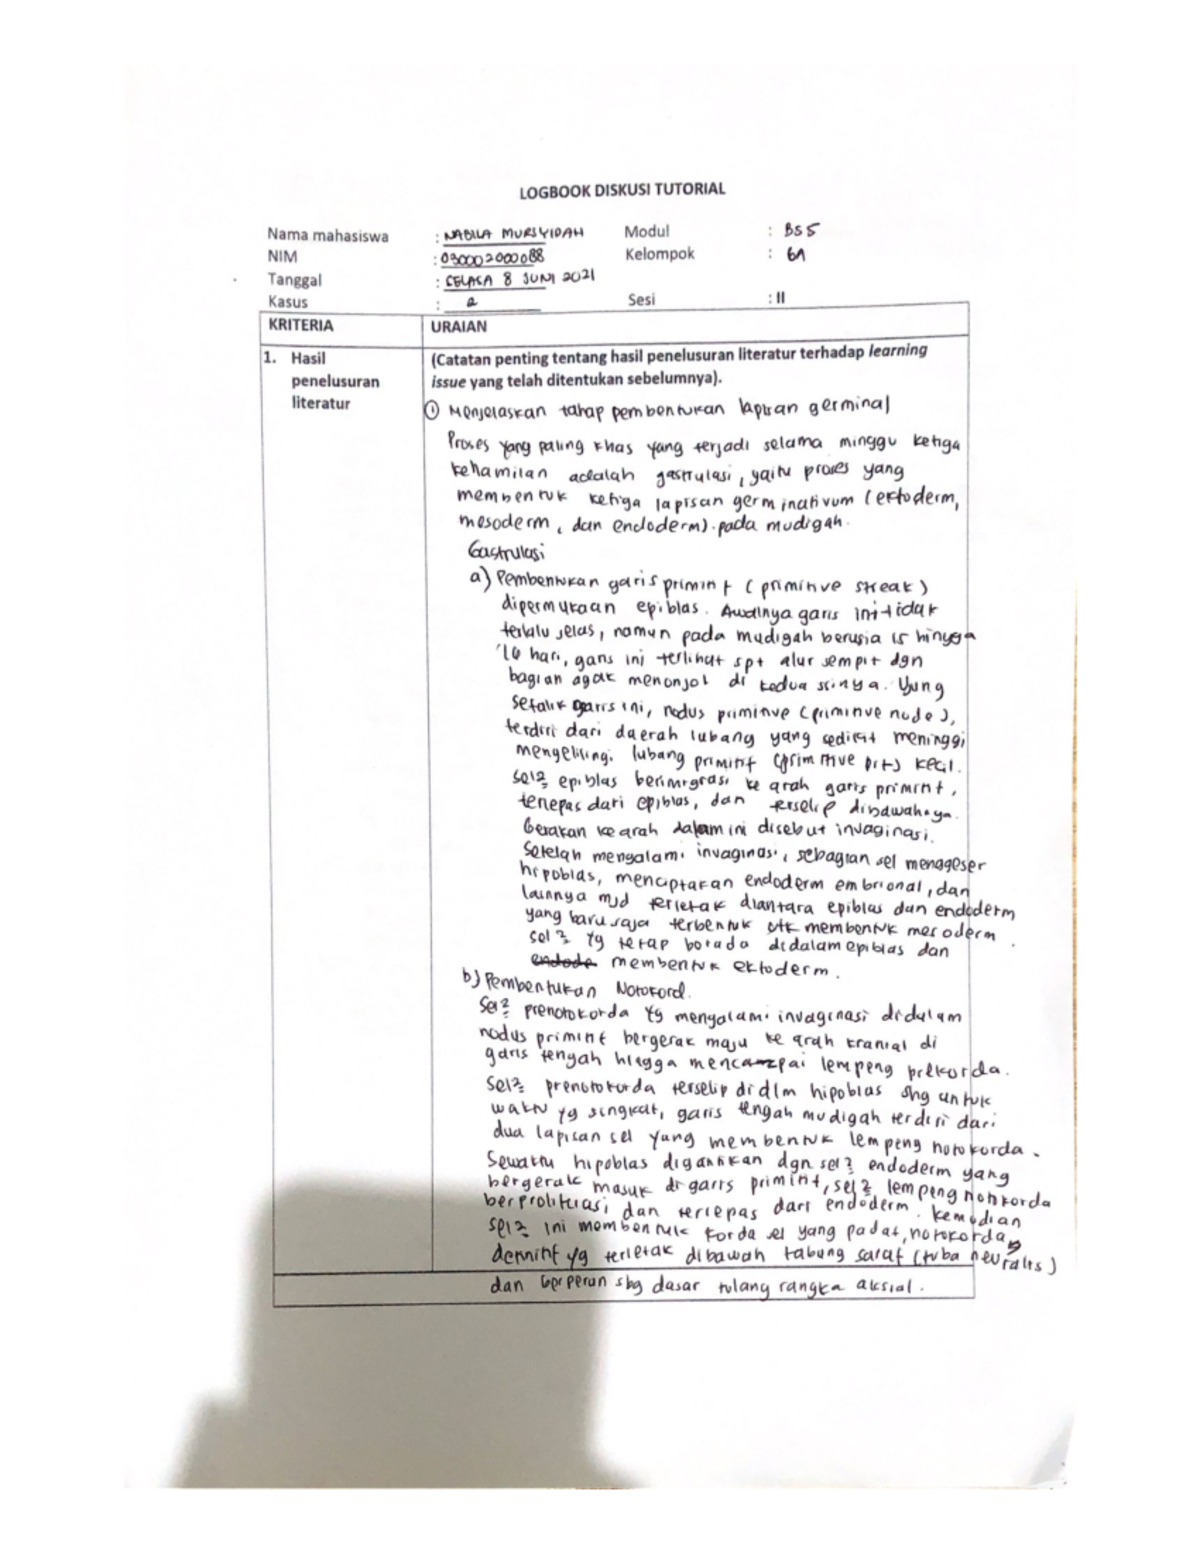 LOGBOOK DISKUSI TUTORIAL
Nama mahasiswa : NABILA MURSYIDAH Modul : BS5
NIM : 030002000088 Kelompok : 6A
Tanggal : SELASA 8 JUNI 2021
Kasus : 2 Sesi : II
KRITERIA URAIAN
1. Hasil penelusuran literatur
(Catatan penting tentang hasil penelusuran literatur terhadap learning
issue yang telah ditentukan sebelumnya).
① Menjelaskan tahap pembentukan lapisan germinal
Proses yang paling khas yang terjadi selama minggu ketiga
kehamilan adalah gastrulasi, yaitu proses yang
membentuk ketiga lapisan germinativum (ektoderm,
mesoderm, dan endoderm) pada mudigah.
Gastrulasi
a) Pembentukan garis primitif (primitive streak)
dipermukaan epiblas. Awalnya garis ini tidak
terlalu jelas, namun pada mudigah berusia 15 hingga
16 hari, garis ini terlihat spt alur sempit dgn
bagian agak menonjol di kedua sisinya. Ujung
sefalik garis ini, nodus primitive (primitive node),
terdiri dari daerah lubang yang sedikit meninggi
mengelilingi lubang primitif (primitive pit) kecil.
Sel2 epiblas bermigrasi ke arah garis primitif,
terlepas dari epiblas, dan terselip dibawahnya.
Gerakan ke arah dalam ini disebut invaginasi.
Setelah mengalami invaginasi, sebagian sel menggeser
hipoblas, menciptakan endoderm embrional, dan
lainnya mjd terletak diantara epiblas dan endoderm
yang baru saja terbentuk utk membentuk mesoderm.
Sel2 yg tetap berada didalam epiblas dan
endode membentuk ektoderm.
b) Pembentukan Notokord.
Sel2 prenotokorda yg mengalami invaginasi didalam
nodus primitif bergerak maju ke arah kranial di
garis tengah hingga mencapai lempeng prekorda.
Sel2 prenotokorda terselip di dlm hipoblas shg untuk
waktu yg singkat, garis tengah mudigah terdiri dari
dua lapisan sel yang membentuk lempeng notokorda.
Sewaktu hipoblas digantikan dgn sel2 endoderm yang
bergerak masuk di garis primitif, sel2 lempeng notokorda
berproliferasi dan terlepas dari endoderm. Kemudian
sel2 ini membentuk korda sel yang padat, notokorda
definitif yg terletak dibawah tabung saraf (tuba neuralis)
dan berperan sbg dasar tulang rangka aksial.